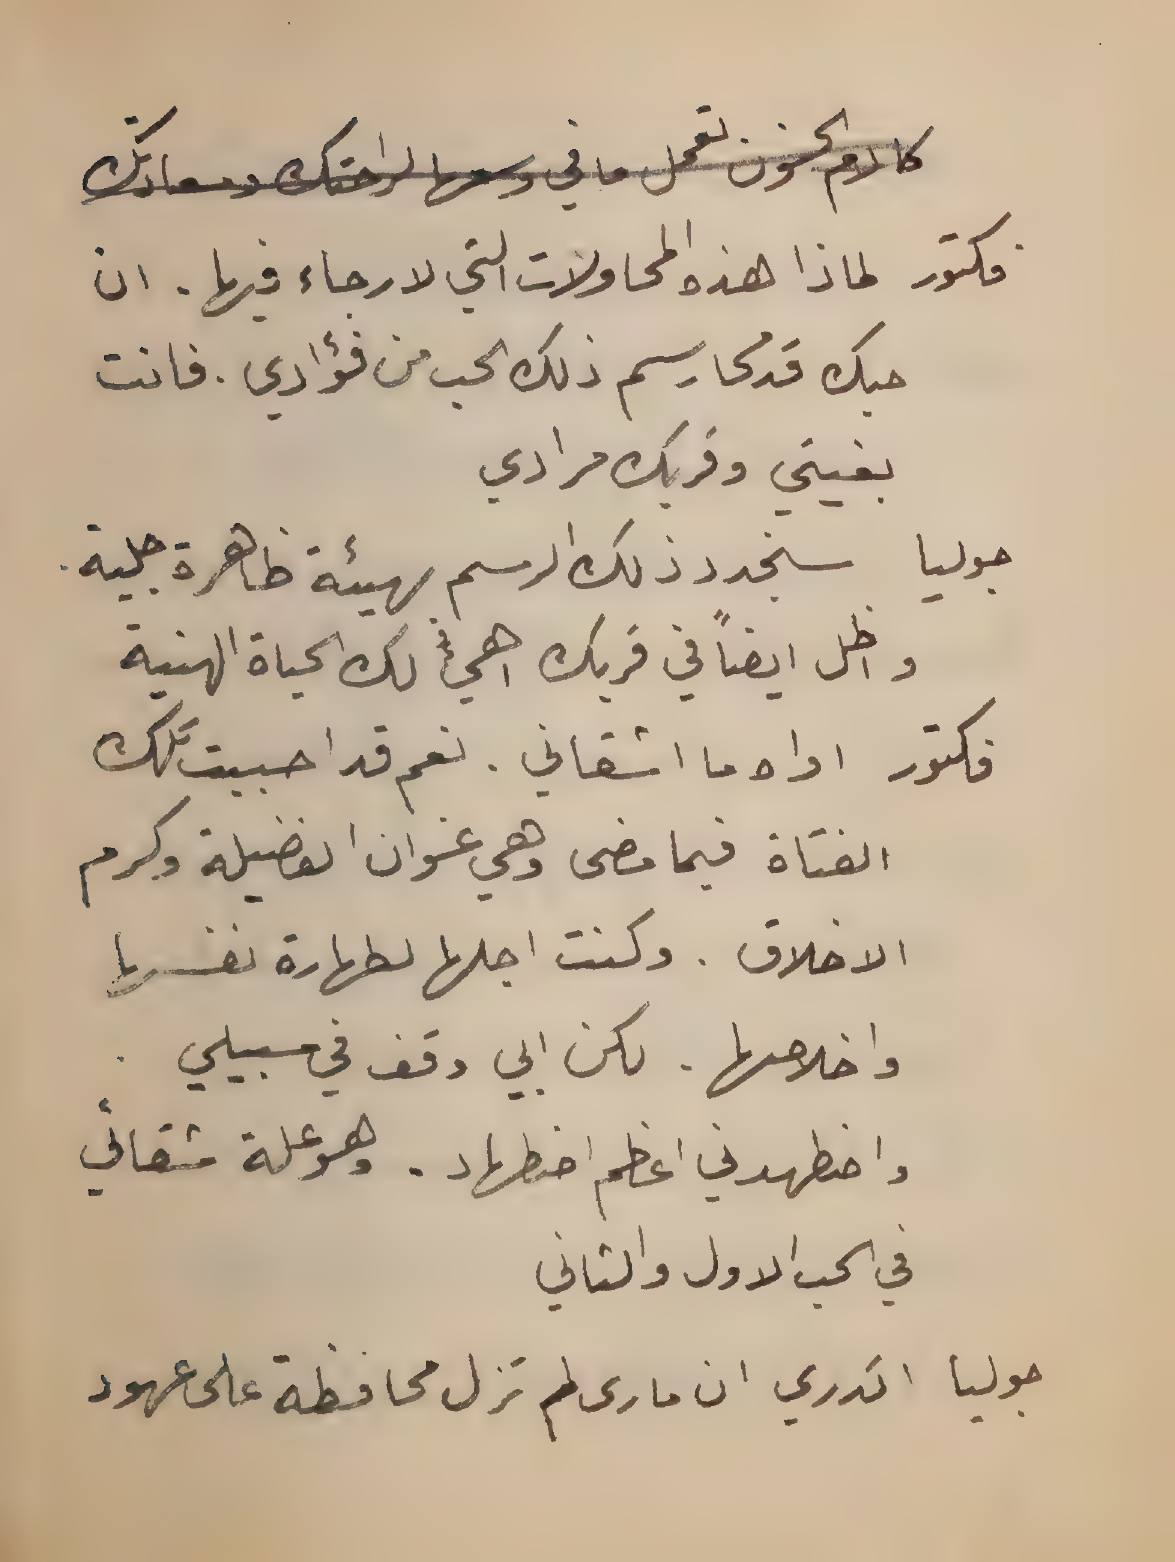 كالام الحنون تعمل ما في وسعها لراحتك وسعادتك
فكتور لماذا هذه المحاولات التي لا رجاء فيها . ان
حبك قد محا رسم ذلك الحب من فؤادي . فانت
بغيتي وقربك مرادي
جوليا سنجدد ذلك الرسم بهيئة ظاهرة جلية .
واظل ايضاً في قربك اهيئ لك الحياة الهنية
فكتور اواه ما اشقاني . نعم قد احببت تلك
الفتاة فيما مضى وهي عنوان الفضيلة وكرم
الاخلاق . وكنت اجلها لطهارة نفسها
واخلاصها . لكن ابي وقف في سبيلي .
واضطهدني اعظم اضطهاد . وهو علة شقائي
في الحب الاول والثاني
جوليا اتدري ان مارى لم تزل محافظة على عهود